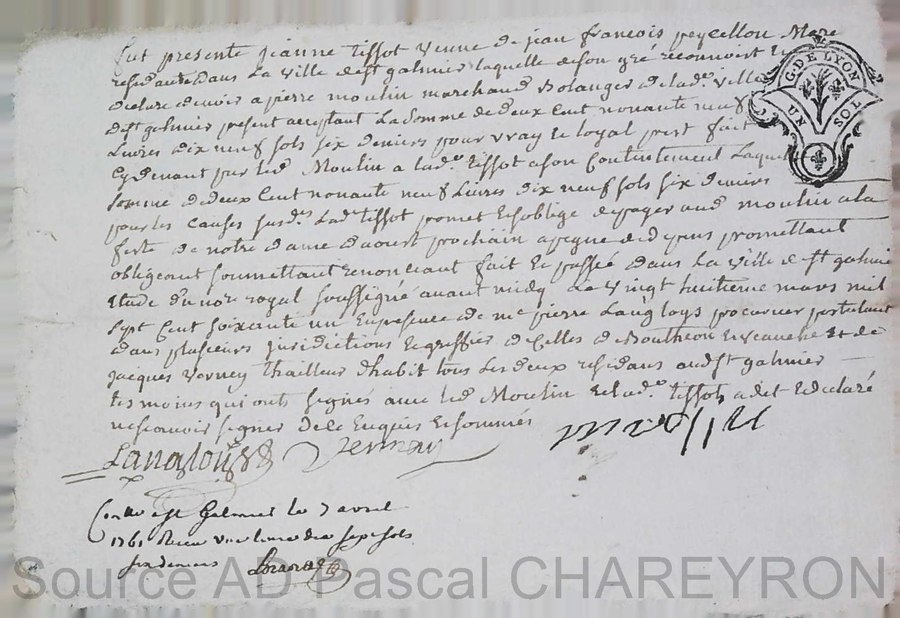 Fut presente jeanne tissot veuve de jean francois peycellon Mere
residante dans La ville de st galmier laquelle de son gré reconnoist et
declare devoir a pierre moulin marchand Bolanger de lad.e ville
de st galmier present acceptant La somme de deux cent nonante neuf
Livres dix neuf sols six deniers pour vray et loyal prest fait
Cy devant par led. Moulin a lad.e tissot a son Contentement Laquelle
somme de deux cent nonante neuf Livres dix neuf sols six deniers
pour les causes susd.es Lad.e tissot promet et soblige de payer aud. moulin a la
feste de notre dame daoust prochain a peyne de depens promettant
obligeant soumettant renonciant fait et passé dans La ville de st galmier
Etude du no.re royal soussigné avant midy Le vingt huitieme mars mil
sept Cent soixante un En presence de me pierre Langloys procureur postulant
dans plusieurs jurisdictions Et greffier de Celles de Bouthéon Et veauche Et de
jacques Verney thailleur dhabit tous Les deux residans aud. st galmier
tesmoins qui onts signés avec led. Moulin Et lad.e tissot a dit et declaré
ne scavoir signer de ce Enquise Et sommée
Langloys Verney moullin
Con.lle a st Galmier le 7 avril
1761 Recu une livre dix sept sols
six deniers
G. DE LYON
UN SOL
Source AD Pascal CHAREYRON